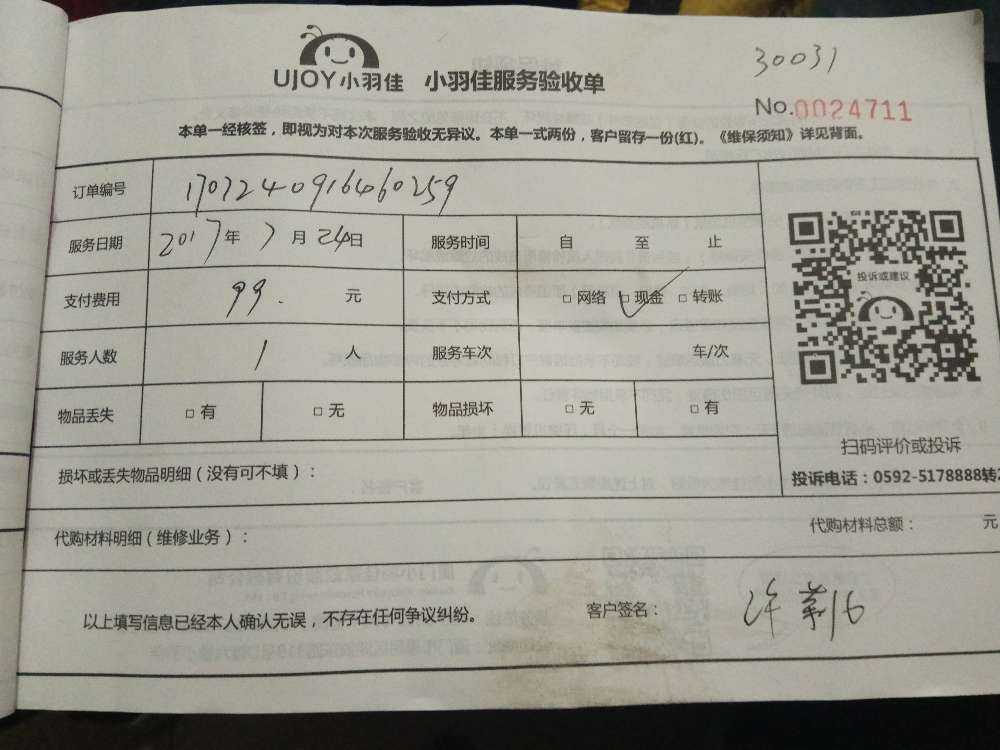 30031
UJOY小羽佳 小羽佳服务验收单
No.0024711
本单一经核签，即视为对本次服务验收无异议。本单一式两份，客户留存一份(红)。《维保须知》详见背面。
订单编号 1707240916460259
服务日期 2017年7月24日 服务时间 自 至 止
支付费用 99. 元 支付方式 □网络 □现金 □转账
投诉或建议
服务人数 1 人 服务车次 车/次
物品丢失 □有 □无 物品损坏 □无 □有
扫码评价或投诉
损坏或丢失物品明细（没有可不填）：
投诉电话：0592-5178888转2
代购材料明细（维修业务）： 代购材料总额： 元
以上填写信息已经本人确认无误，不存在任何争议纠纷。 客户签名： 许